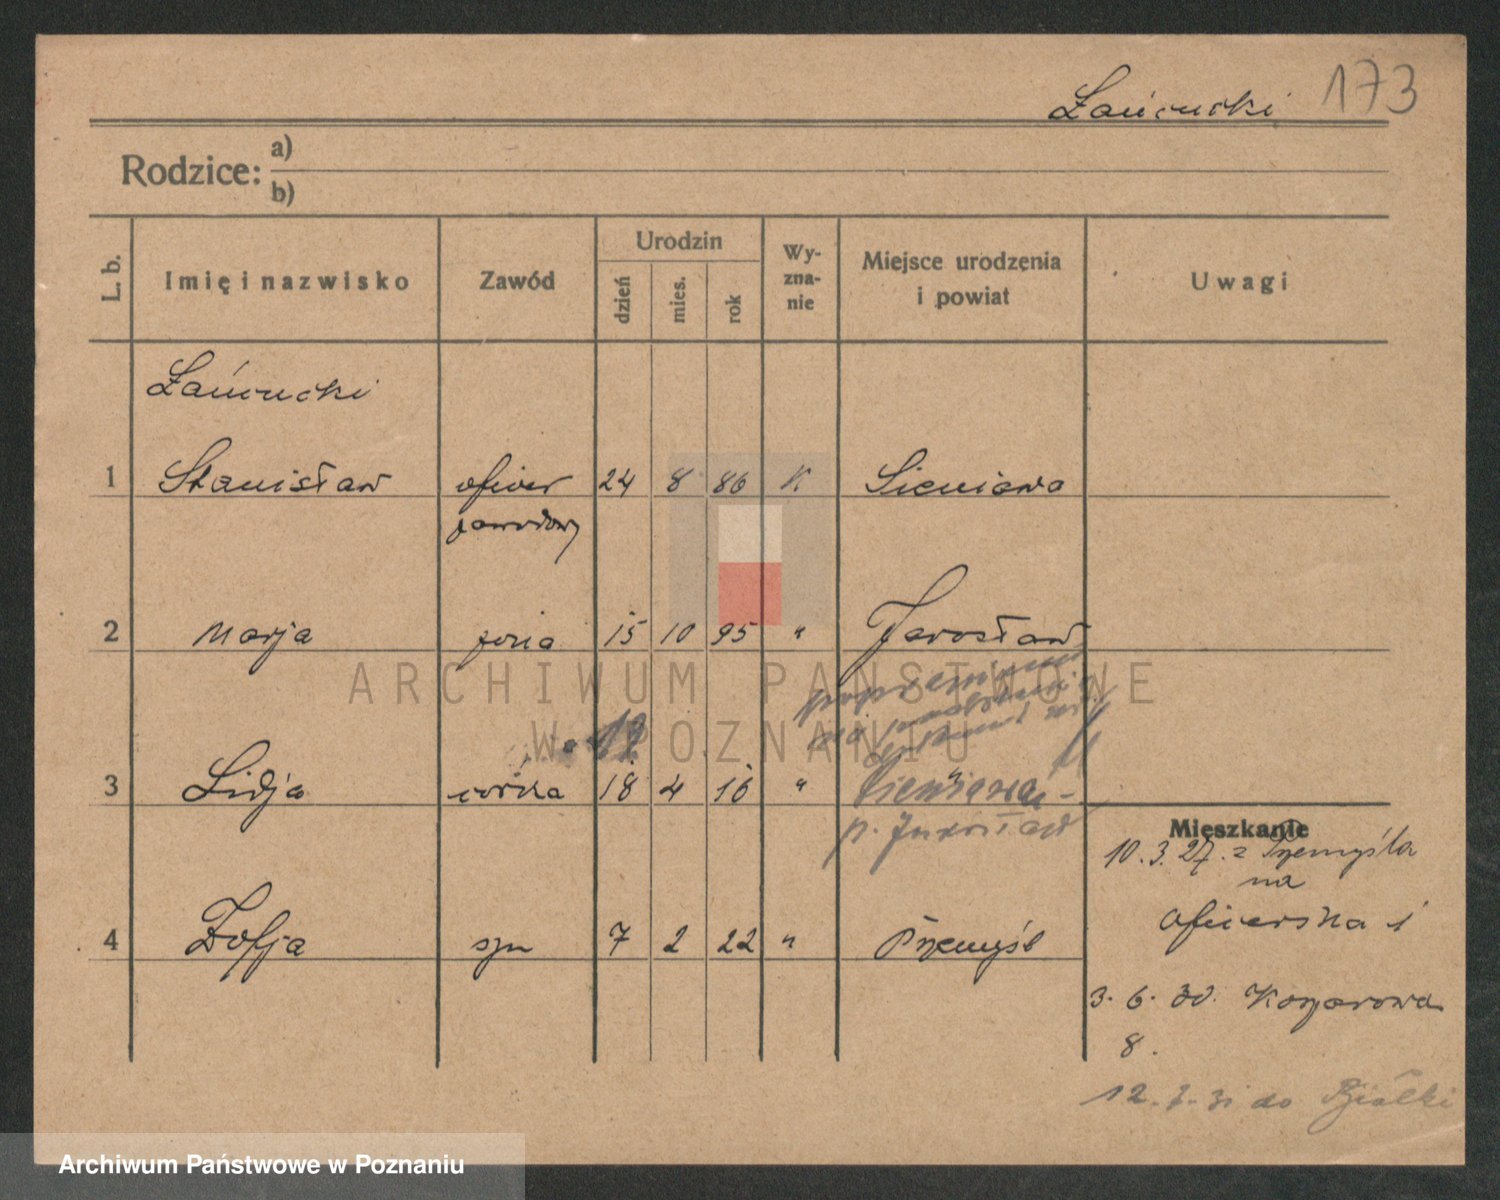 Łańcucki 173
Rodzice: a)
b)
L. b.
Imię i nazwisko
Zawód
Urodzin
dzień
mies.
rok
Wy-
zna-
nie
Miejsce urodzenia
i powiat
Uwagi
Łańcucki
1 Stanisław oficer 24 8 86 K Sieniawa
zawodowy
2 Marja żona 15 10 95 " Jarosław
ARCHIWUM PAŃSTWOWE
W POZNANIU
12
3 Lidja córka 18 4 16 " Sieniawa
p. Jarosław
Mieszkanie
10.3.27. z Przemyśla
na
Oficerska 1
4 Zofja syn 7 2 22 " Przemyśl
3. 6. 30. Koszarowa
8.
12. 7. 31 do
Archiwum Państwowe w Poznaniu